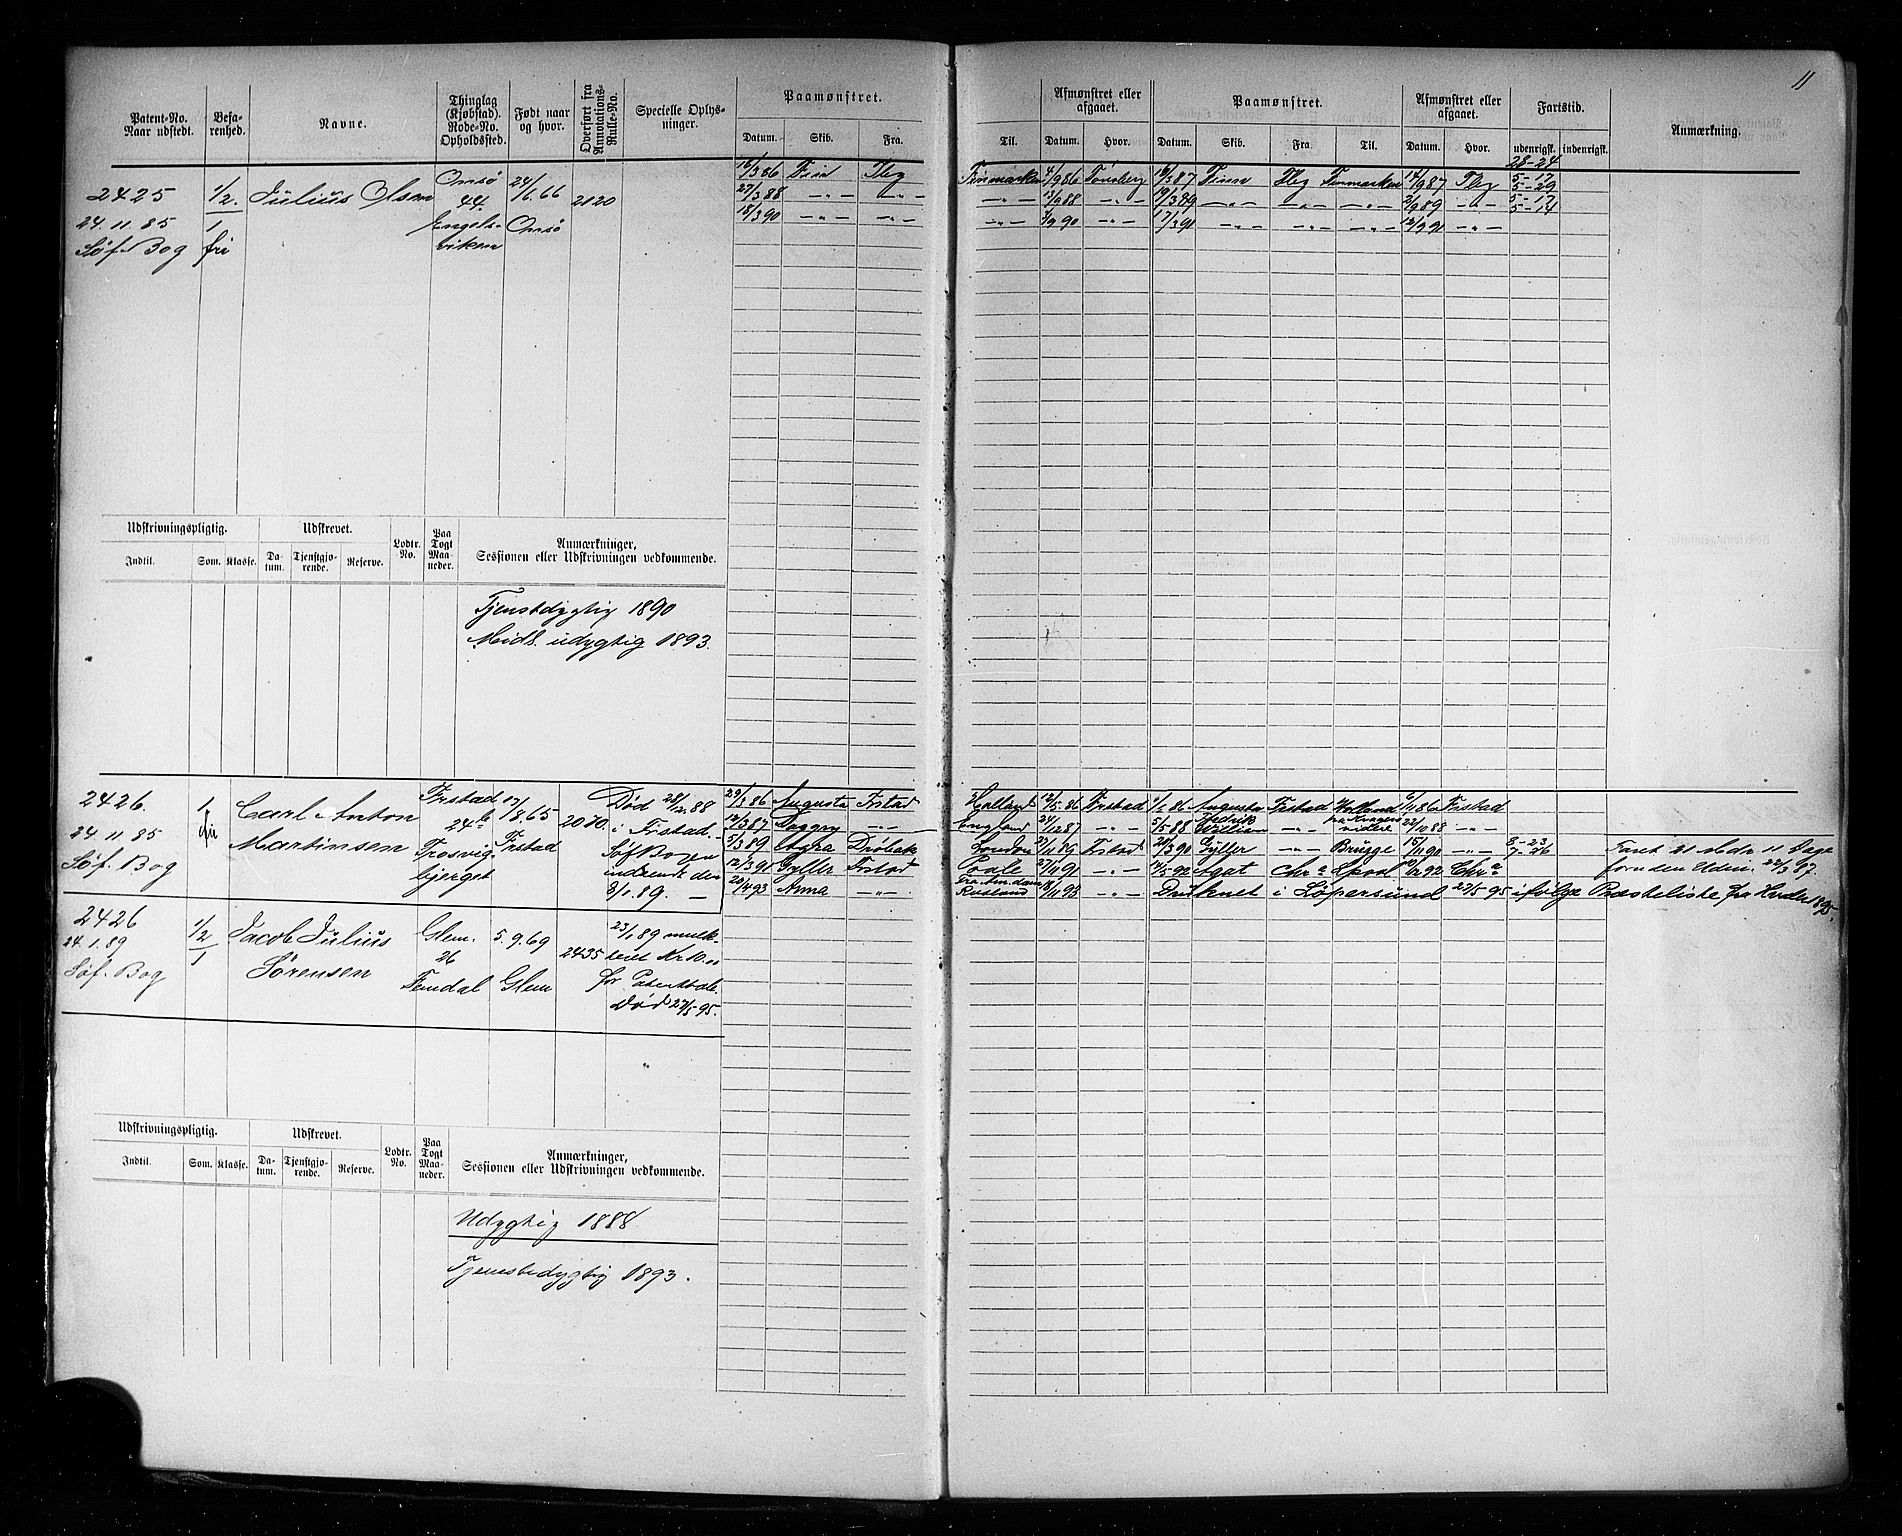 11
Patent-No. Naar udstedt. Befarenhed. Navne. Thinglag (Kjøbstad). Rode-No. Opholdssted. Født naar og hvor. Overført fra Annotations-Rulle-No. Specielle Oplysninger. Paamønstret. Afmønstret eller afgaaet. Paamønstret. Afmønstret eller afgaaet. Fartstid. Anmærkning.
Datum. Skib. Fra. Til. Datum. Hvor. Datum. Skib. Fra. Til. Datum. Hvor. udenrigsk. indenrigsk.
28-24
16/3 86 Finn Tbg Finmarken 4/9 86 Tønsberg 16/3 87 Finn Tbg Finmarken 14/9 87 Tbg 5-17
2425 1/2. Julius Olsen Onsø 24/1. 66 2120 27/3 88 -„- -„- -„- 13/9 88 -„- 19/3 89 -„- -„- -„- 2/9 89 -„- 5-29
44 5-17
24.11.85 1 Engels- Onsø 18/3 90 -„- -„- -„- 3/9 90 -„- 17/3 91 -„- -„- -„- 12/9 91 -„- 5-14
Søf. Bog fri viken
Udskrivningspligtig. Udskrevet. Lodtr. No. Paa Togt Maaneder. Anmærkninger, Sessionen eller Udskrivningen vedkommende.
Indtil. Som. Klasse. Datum. Tjenstgjørende. Reserve.
Tjenstdygtig 1890
Midl. udygtig 1893.
2426. 1 Carl Anton Frstad 17/8. 65 2070. Død 28/12. 88 29/3 86 Augusta Frstad Holland 12/5. 86 Frstad 1/6. 86 Augusta Frstad Holland 6/11 86 Frstad
fri 24b i Frstad. 12/3 87 Dagny -„- England 24/12 87 -„- 5/5 88 Fredrik William -„- fra Kragerø videre 22/10 88 -„-
24.11.85 Martinsen Trosvig- Frstad Søf Bogen 5/3 89 Drøbak London 11 89 Frstad 90 Gyller -„- Brügge 15/11 90 -„- 8-23 Faret 21 Mdr 11 Dage
7-26
Søf. Bog bjerget indsendt den 12/3 91 Gyller Frstad 27/10 91 -„- 14/5 92 Agat Chra 12 92 Chra forinden Udskr. 22/3 97.
8/1. 89. - 20/4 93 Anna -„- Fra Am.dam Rusland 10 93 -„- Druknet i 27/5 95 ifølge fra 1895.
2426 1/2 Jacob Julius Glem. 5.9.69 23/1 89 mulk-
24.1.89 1 26 2435 teret Kr 10.00
Søf. Bog Sørensen Glem for Patenttab.
Død 27/5 95.
Udskrivningspligtig. Udskrevet. Lodtr. No. Paa Togt Maaneder. Anmærkninger, Sessionen eller Udskrivningen vedkommende.
Indtil. Som. Klasse. Datum. Tjenstgjørende. Reserve.
Udygtig 1888
Tjenestedygtig 1893.